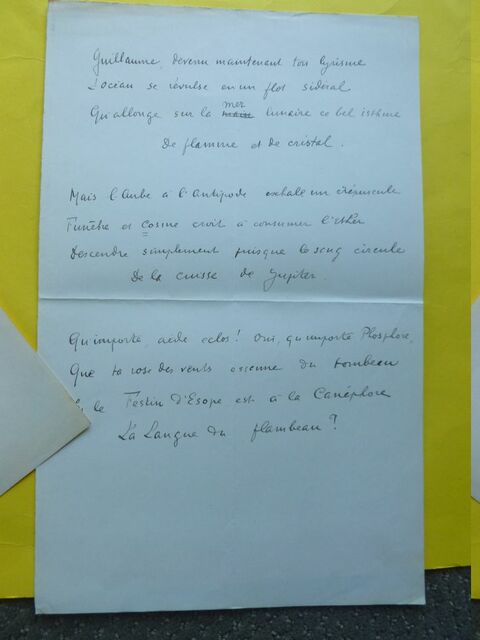 Guillaume, devenu maintenant ton lyrisme
L'océan se révulse en un flot sidéral
Qu'allonge sur la mer lunaire ce bel isthme
De flamme et de cristal.
Mais l'Aube à l'Antipode exhale un crépuscule
Funèbre et Cosme croit à consumer l'Ether
Descendre simplement puisque le sang circule
De la cuisse de Jupiter.
Qu'importe, aède éclos! Oui, qu'importe Phosphore,
Que ta rose des vents du tombeau
le Festin d'Esope est à la Canéphore
La Langue du flambeau?